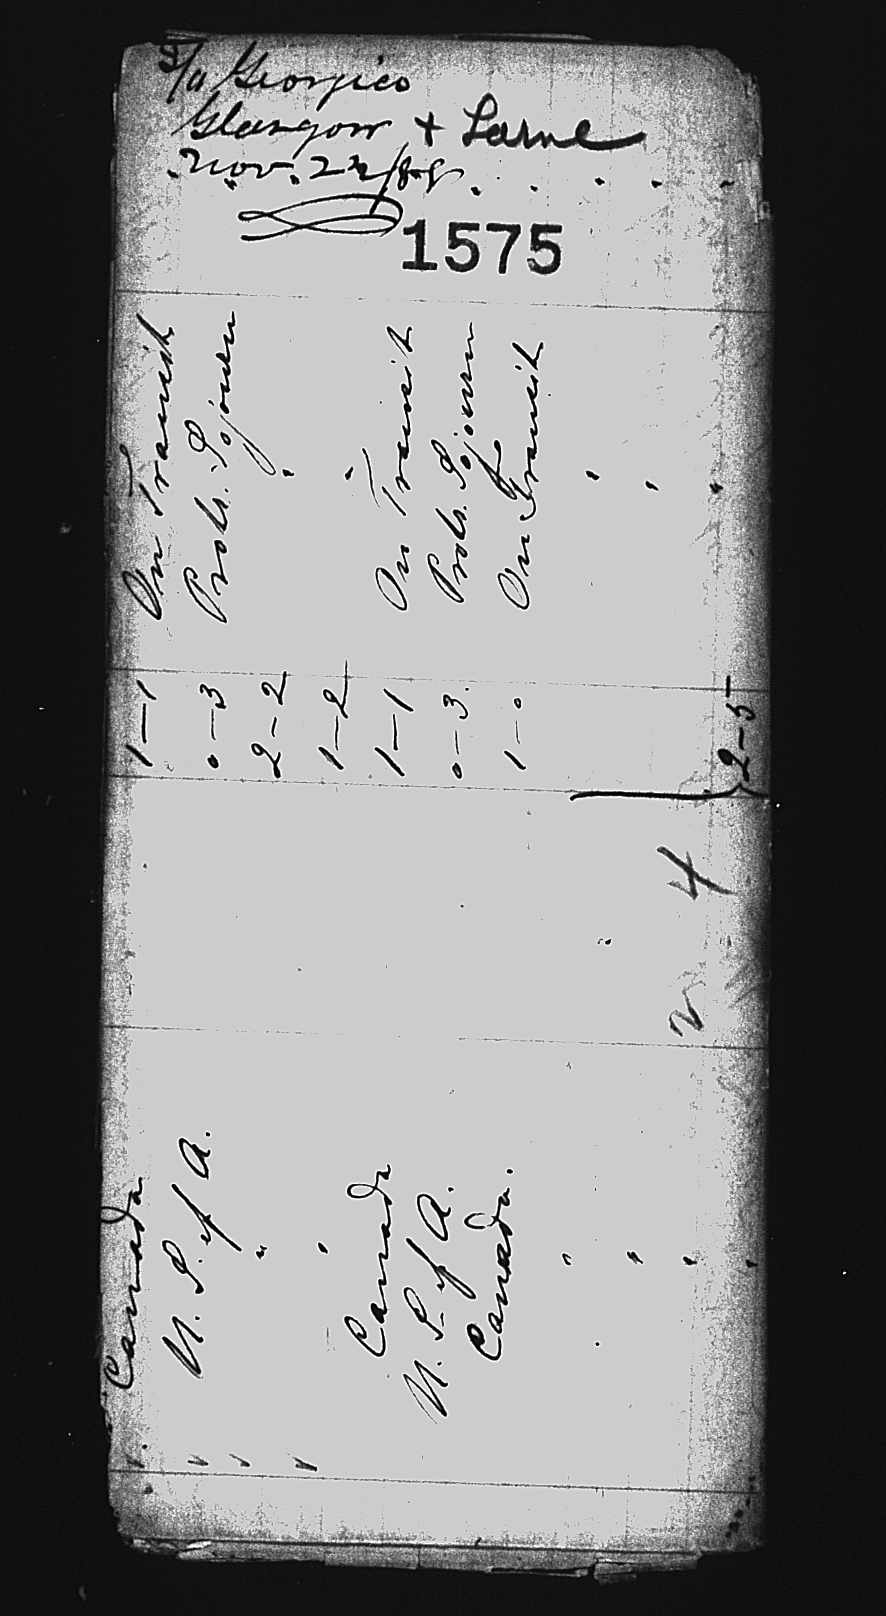 Glasgow + Larne
Nov. 22/88
1575
Canada 1-1 On Transit
U. S. of A. 0-3 Prob. Sojourn
" 2-2 "
" 1-2 "
Canada 1-1 On Transit
U. S. of A. 0-3 Prob. Sojourn
Canada. 1-0 On Transit
" "
" "
" "
2 4 2-5
"